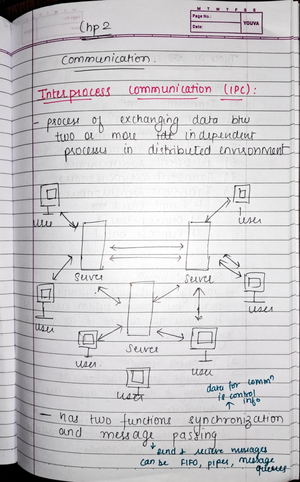 M T W T F S S
Page No.:
Date:
YOUVA
Chp 2
Communication.
Interprocess Communication (IPC):
- process of exchanging data btw
two or more independent
processes in distributed environment
User
User
Server
Server
User
User
Server
User
User
User
data for commn
to control
info
- has two functions synchronization
and message passing
send & receive messages
can be FIFO, pipes, message
queues